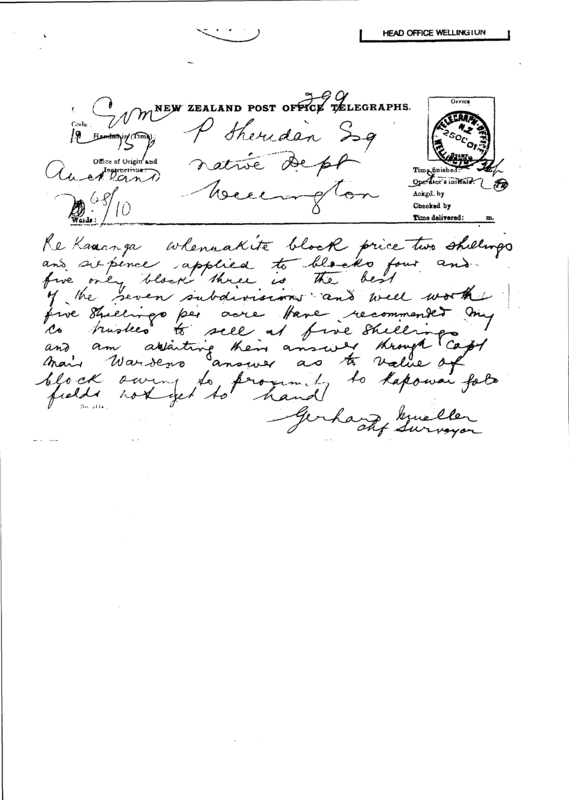 HEAD OFFICE WELLINGTON
299
NEW ZEALAND POST OFFICE TELEGRAPHS.
Govm
Code:
Handed in (Time):
P Sheridan Esq
Office of Origin and
Instructions:
Auckland
native Dept
Wellington
68/10
Words:
Office
TELEGRAPH-OFFICE
N.Z.
25OC01
WELLINGTON
Time finished:
Operator's initials:
Ackgd. by
Checked by
Time delivered: m.
Re Kauanga whenuakite block price two shillings
and sixpence applied to blocks four and
five only block three is the best
of the seven subdivisions and well worth
five Shillings per acre Have recommended my
co trustees to sell at five Shillings
and am awaiting their answer through Capt
Mair Wardens answer as to value of
block owing to proximity to Kapowai gold
fields not yet to hand
Gerhard Mueller
Chf Surveyor